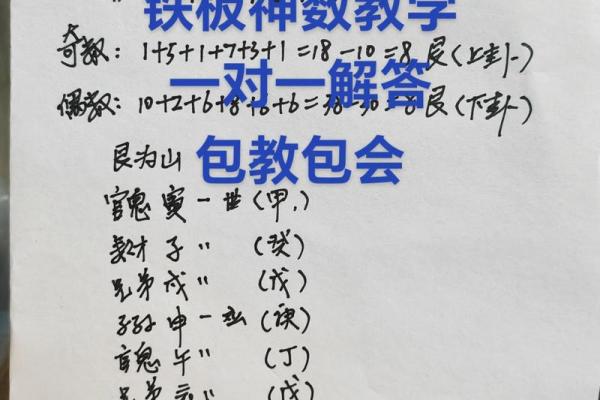 铁板神数教学
奇数：1+5+1+7+3+1=18-10=8艮(上卦)
一对一解答
偶数：10+2+6+8+6+6=38-30=8艮(下卦)
艮为山
包教包会
官鬼寅一世(甲)
妻才子〃(癸)
兄弟戌〃(戊)
子孙申一应(庚)
官鬼午〃(丁)
兄弟〃(戊)